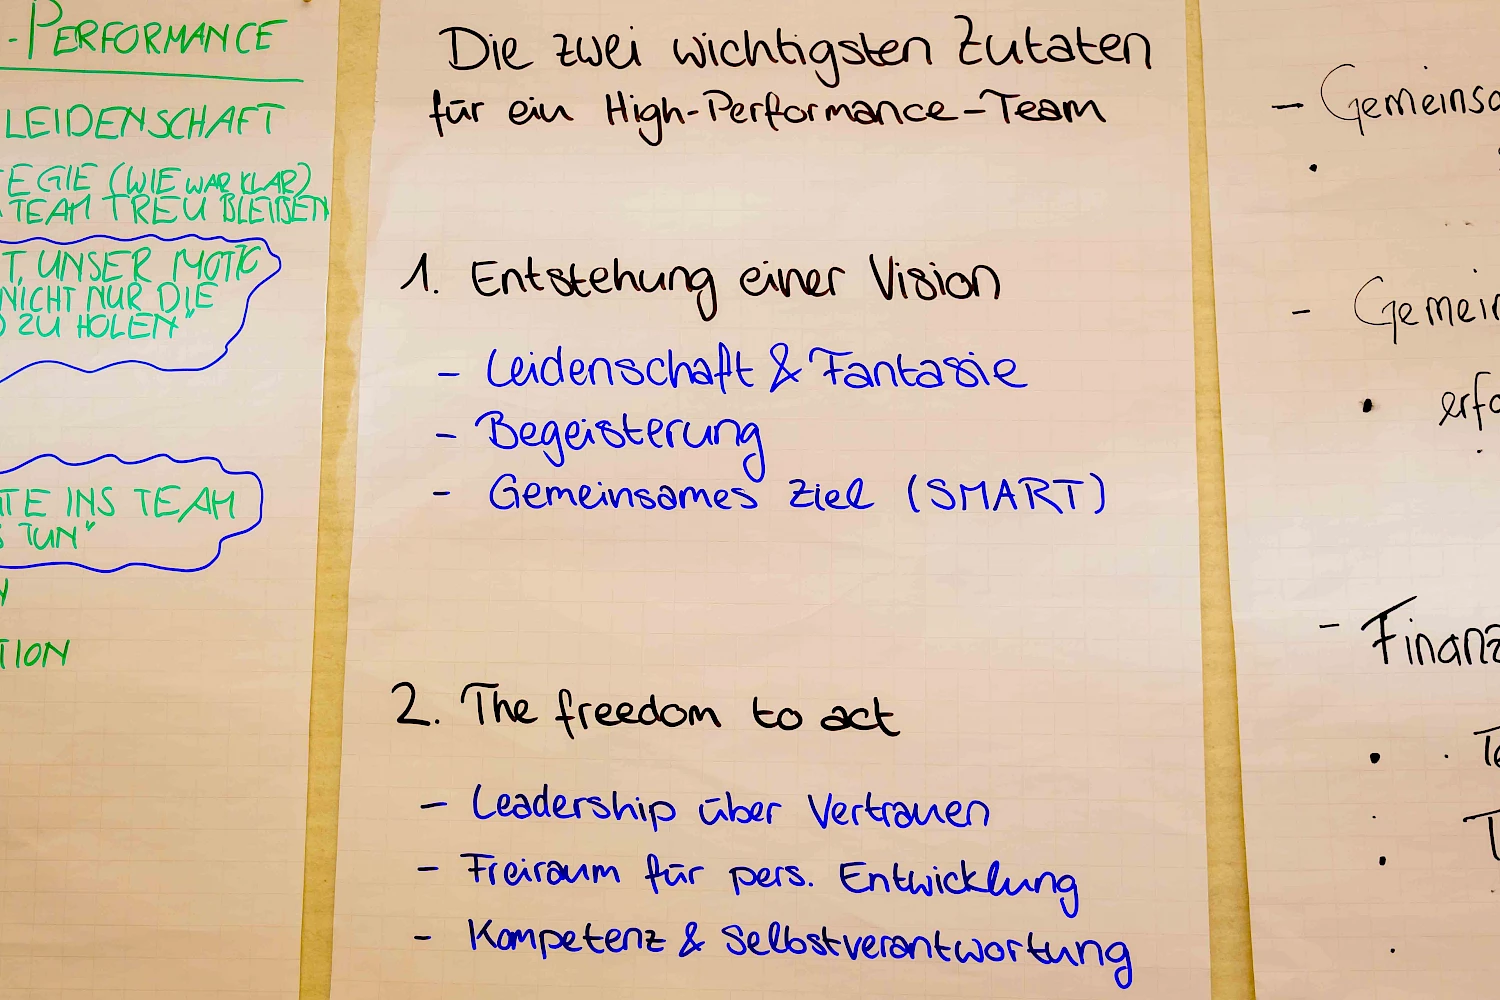 -PERFORMANCE
LEIDENSCHAFT
EGIE (WIE WAR KLAR)
TEAM TREU BLEIBEN
T, UNSER MOTTO
NICHT NUR DIE
ZU HOLEN"
TE INS TEAM
S TUN"
TION
Die zwei wichtigsten Zutaten
für ein High-Performance-Team
1. Entstehung einer Vision
- Leidenschaft & Fantasie
- Begeisterung
- Gemeinsames Ziel (SMART)
2. The freedom to act
- Leadership über Vertrauen
- Freiraum für pers. Entwicklung
- Kompetenz & Selbstverantwortung
- Gemeinsa
- Gemein
• erfo
- Finanz